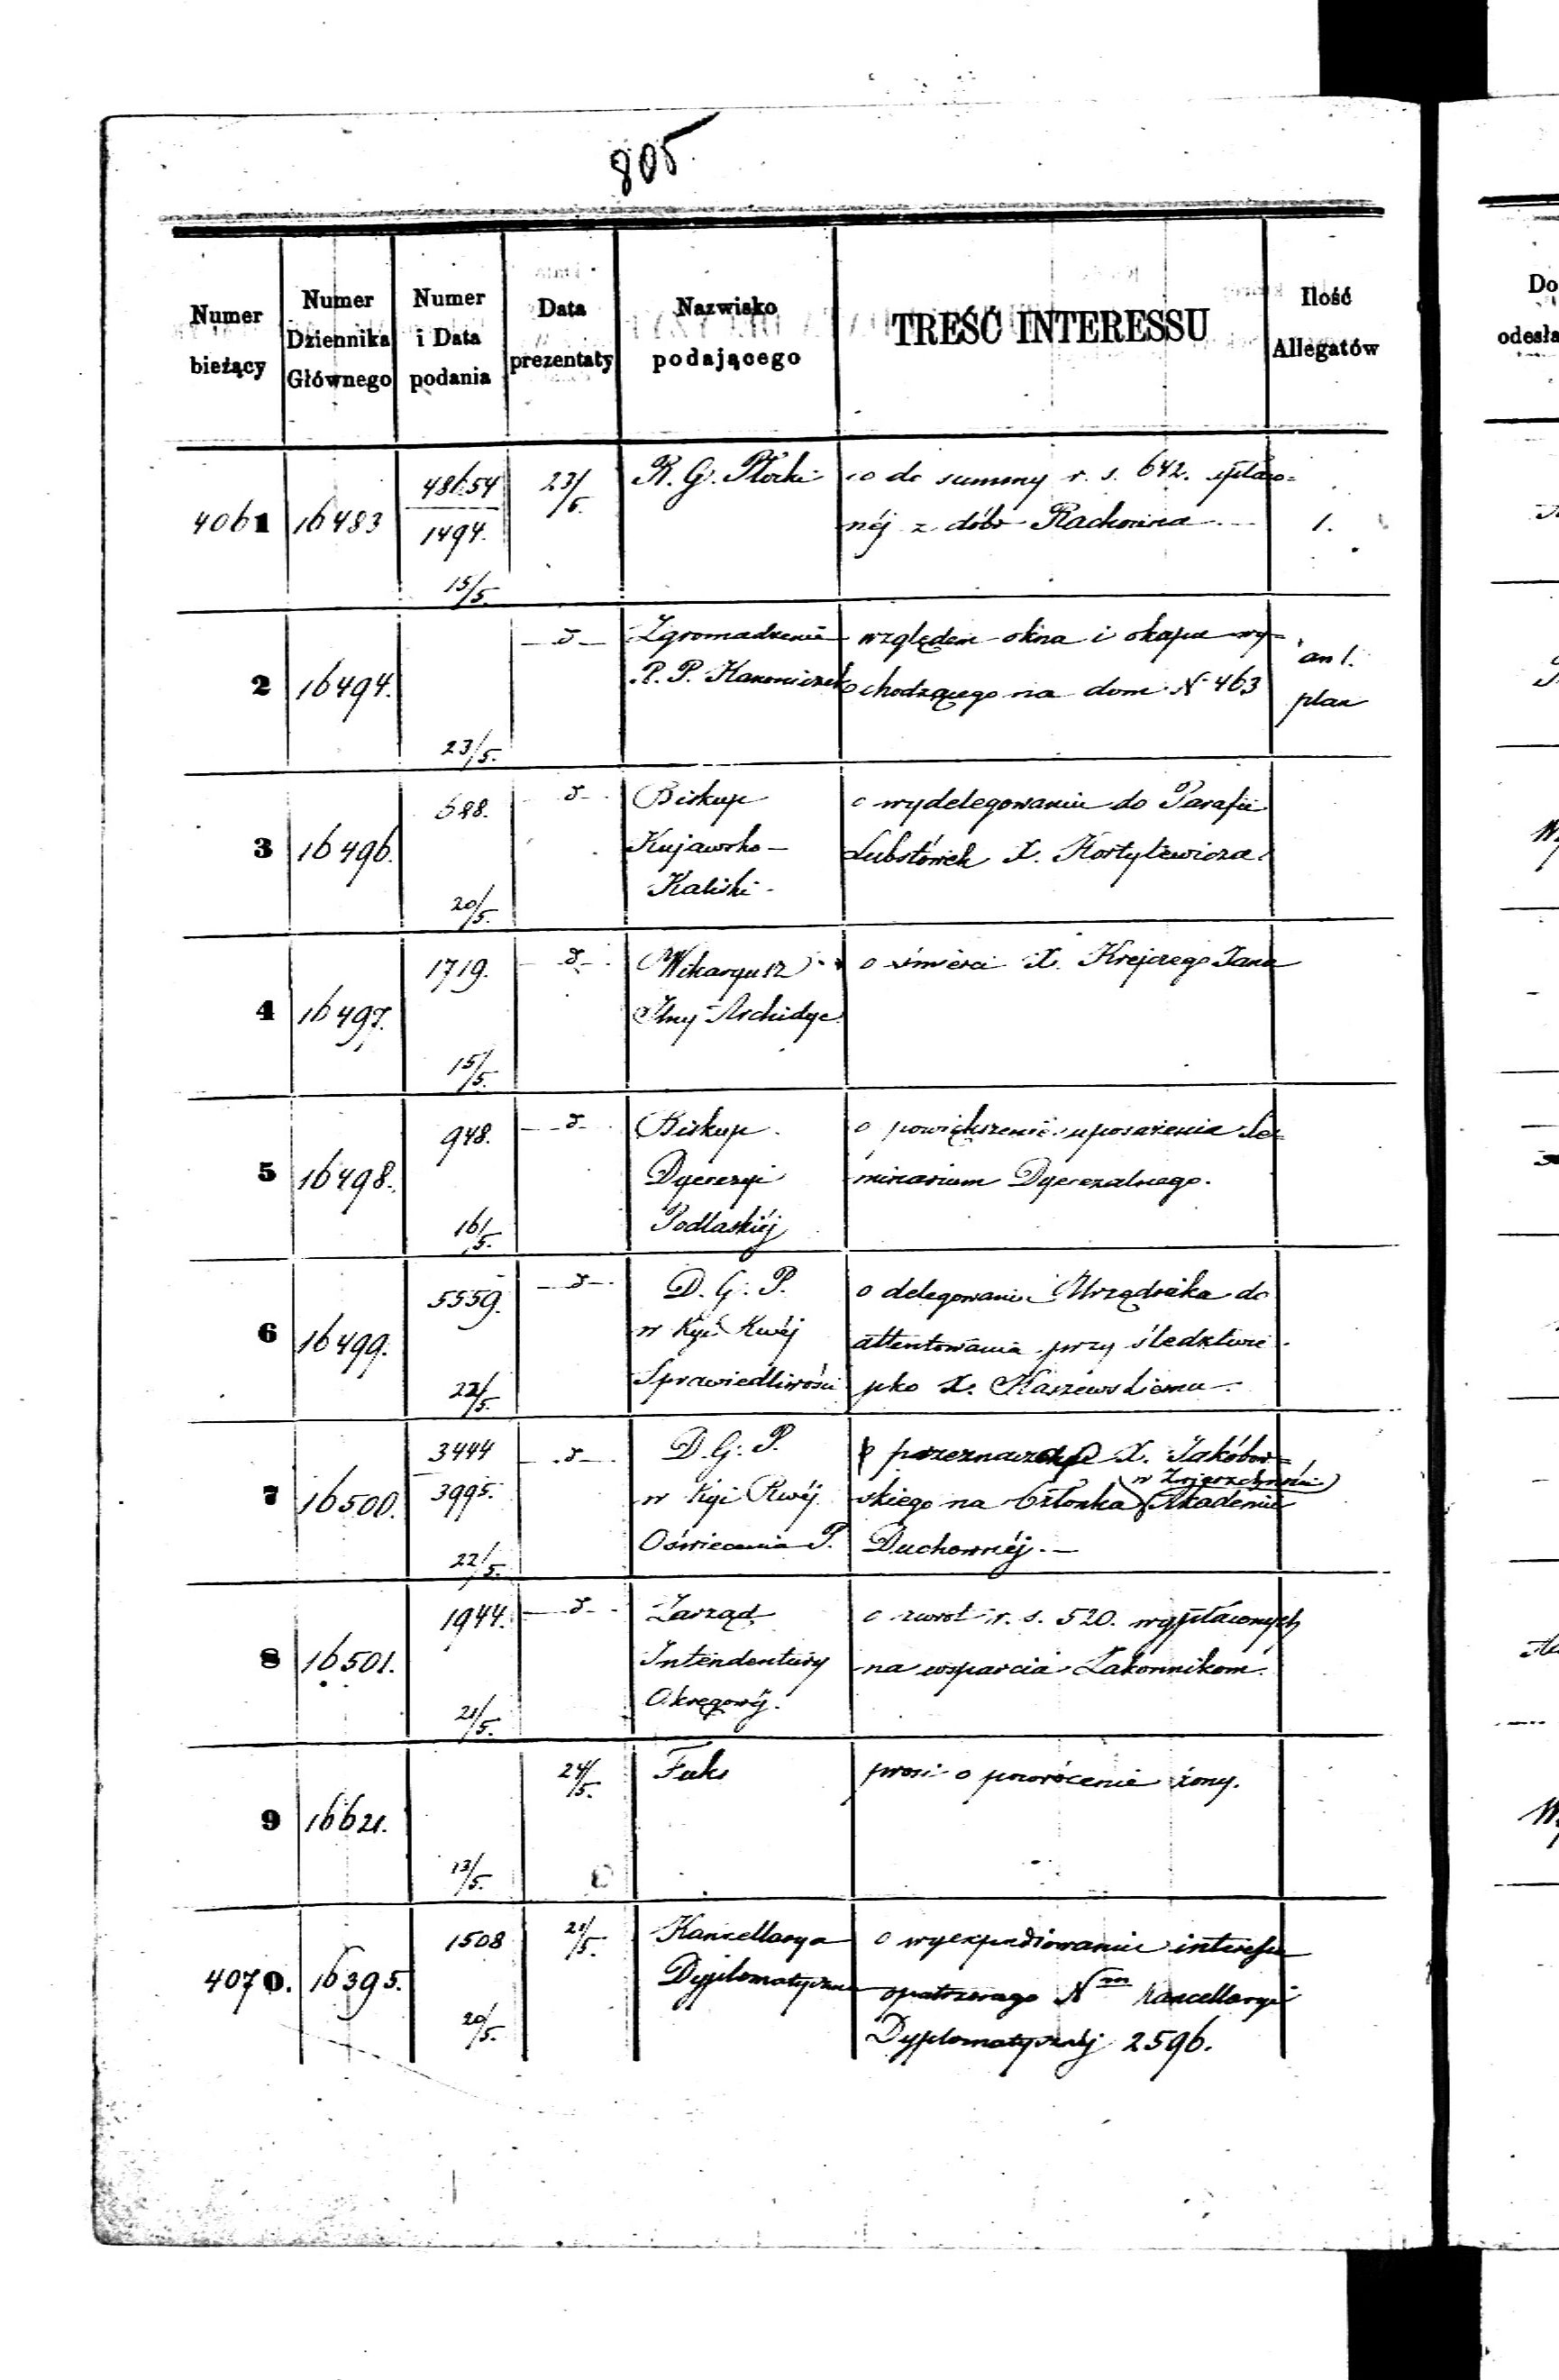 805
Numer bieżący
Numer Dziennika Głównego
Numer i Data podania
Data prezentaty
Nazwisko podającego
TREŚĆ INTERESSU
Ilość Allegatów
Do
odesła
4061 16483 48654 23/5. R. G. Płocki co do summy r. s. 642. spłaco=
1494. néj z dóbr 1.
15/5.
2 16494. — d — Zgromadzenie względem okna i okapu wy= an 1.
P. P. Kanoniczek chodzącego na dom N 463 plan
23/5.
3 16496. 688. d — Biskup o wydelegowanie do Parafii
Kujawsko — Lubstówek X. Kostylewicza.
Kaliski.
20/5.
4 16497. 1719. — d — o śmierci X. Krejczego Jana
Archidyec.
15/5.
5 16498. 948. — d — Biskup o powiększenie uposażenia Se=
Dyecezyi minarium Dyecezalnego.
16/5. Podlaskiéj
6 16499. 5559. — d — D. G. P. o delegowanie Urzędnika do
w Kyi Rwéj attentowania przy śledztwie
22/5. Sprawiedliwości pko X. Kaszewskiemu.
7 16500. 3444 — d — D. G. P. X. Jakóbow=
3995. w Kyi Rwéj skiego na Członka w Zwierzchności Akademii
22/5. Oświecenia P. Duchownéj. —
8 16501. 1944. — d — Zarząd o zwrot r. s. 520. wypłaconych
Intendentury na wsparcia Zakonnikom.
21/5. Okręgowéj.
9 16621. 24/5. Fuks prosi o powrócenie żony.
13/5.
4070. 16395. 1508 21/5. Kancellarya o wyexpediowanie interesu
Dyplomatyczna opatrzonego Nm Kancellaryi
20/5. Dyplomatycznéj 2596.